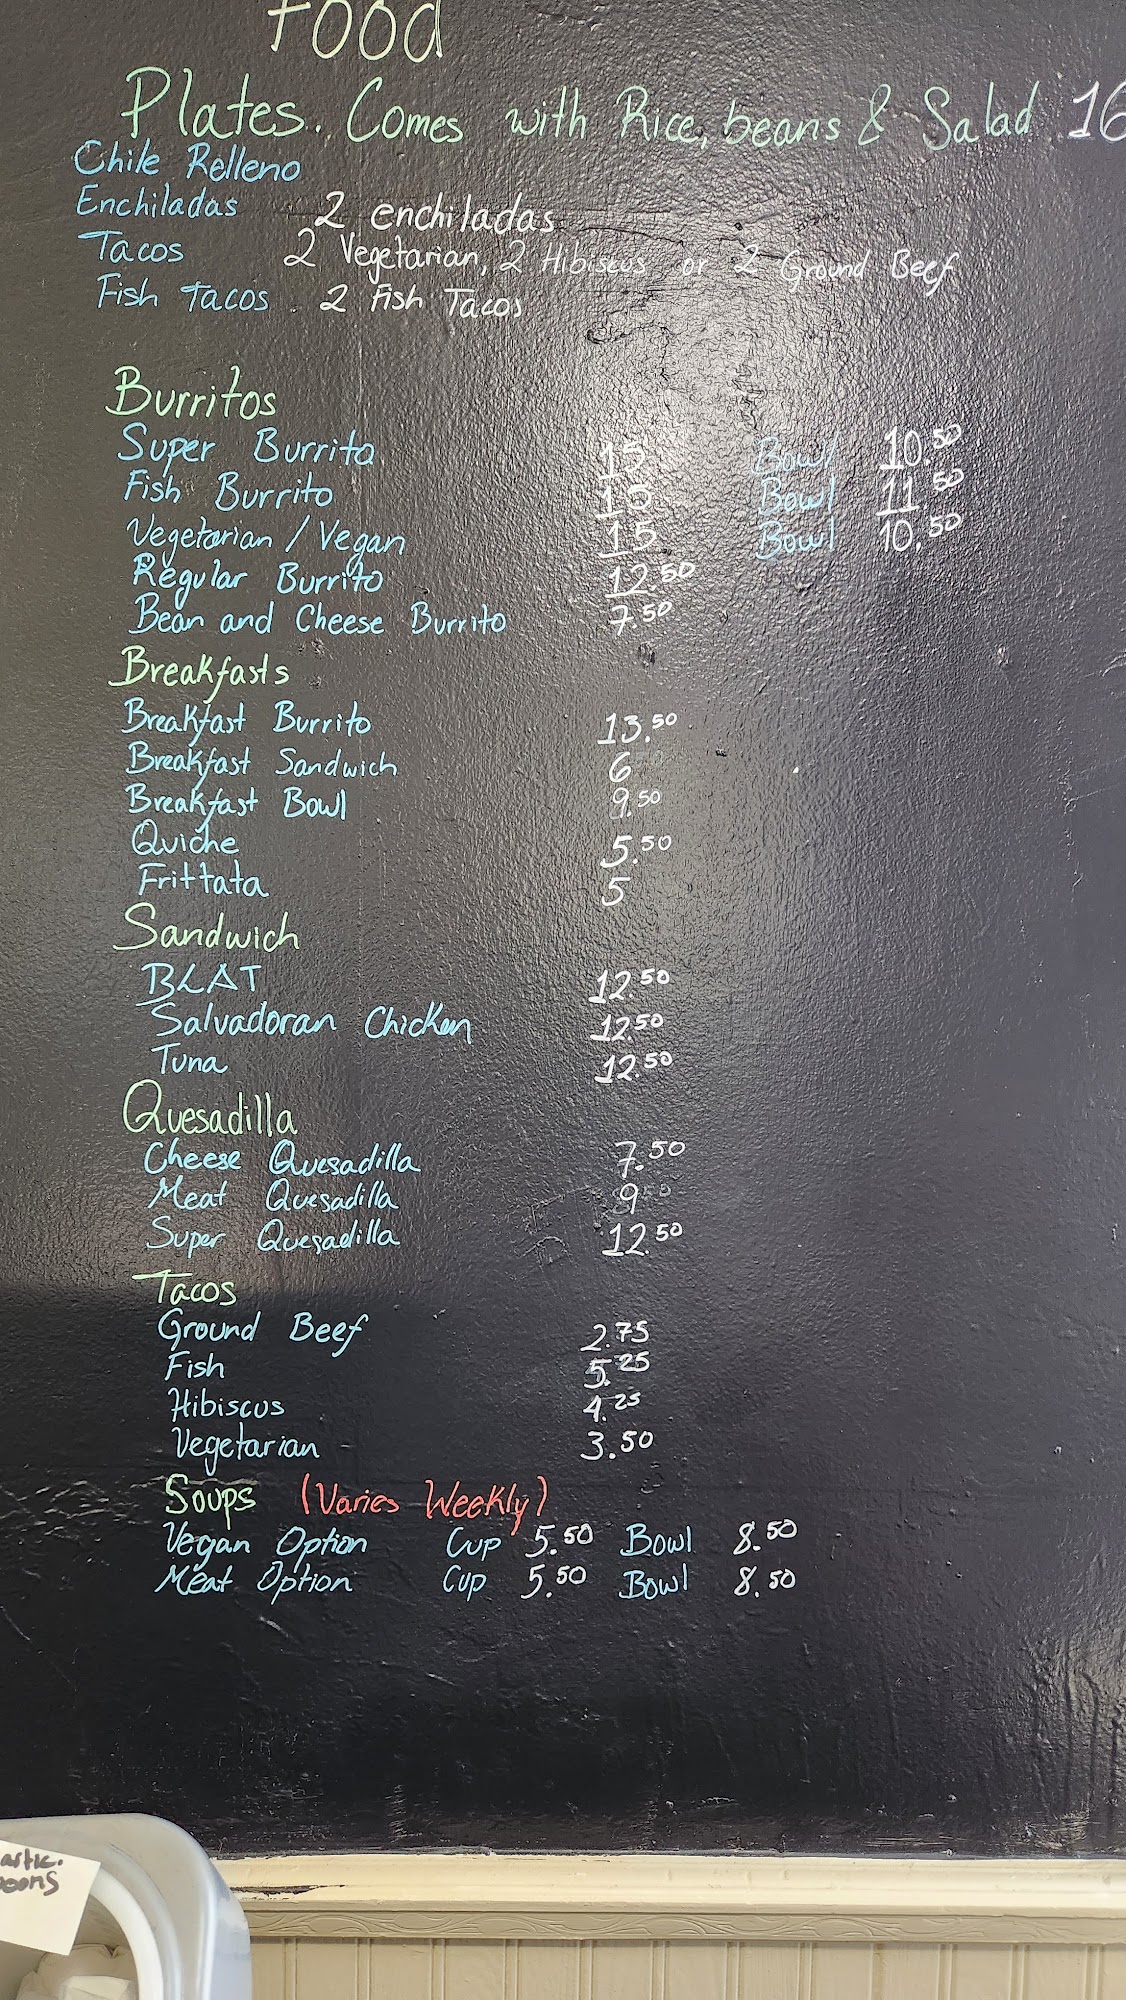 Food
Plates.. Comes with Rice, beans & Salad 16
Chile Relleno
Enchiladas 2 enchiladas
Tacos 2 Vegetarian, 2 Hibiscus or 2 Ground Beef
Fish Tacos . 2 Fish Tacos
Burritos
Super Burrito 15 Bowl 10.50
Fish Burrito Bowl 11.50
Vegetarian / Vegan 15 Bowl 10.50
Regular Burrito 12.50
Bean and Cheese Burrito 7.50
Breakfasts
Breakfast Burrito 13.50
Breakfast Sandwich 6
Breakfast Bowl 9.50
Quiche 5.50
Frittata 5
Sandwich
BLAT 12.50
Salvadoran Chicken 12.50
Tuna 12.50
Quesadilla
Cheese Quesadilla 7.50
Meat Quesadilla 9
Super Quesadilla 12.50
Tacos
Ground Beef 2.75
Fish 5.25
Hibiscus 4.25
Vegetarian 3.50
Soups (Varies Weekly)
Vegan Option Cup 5.50 Bowl 8.50
Meat Option Cup 5.50 Bowl 8.50